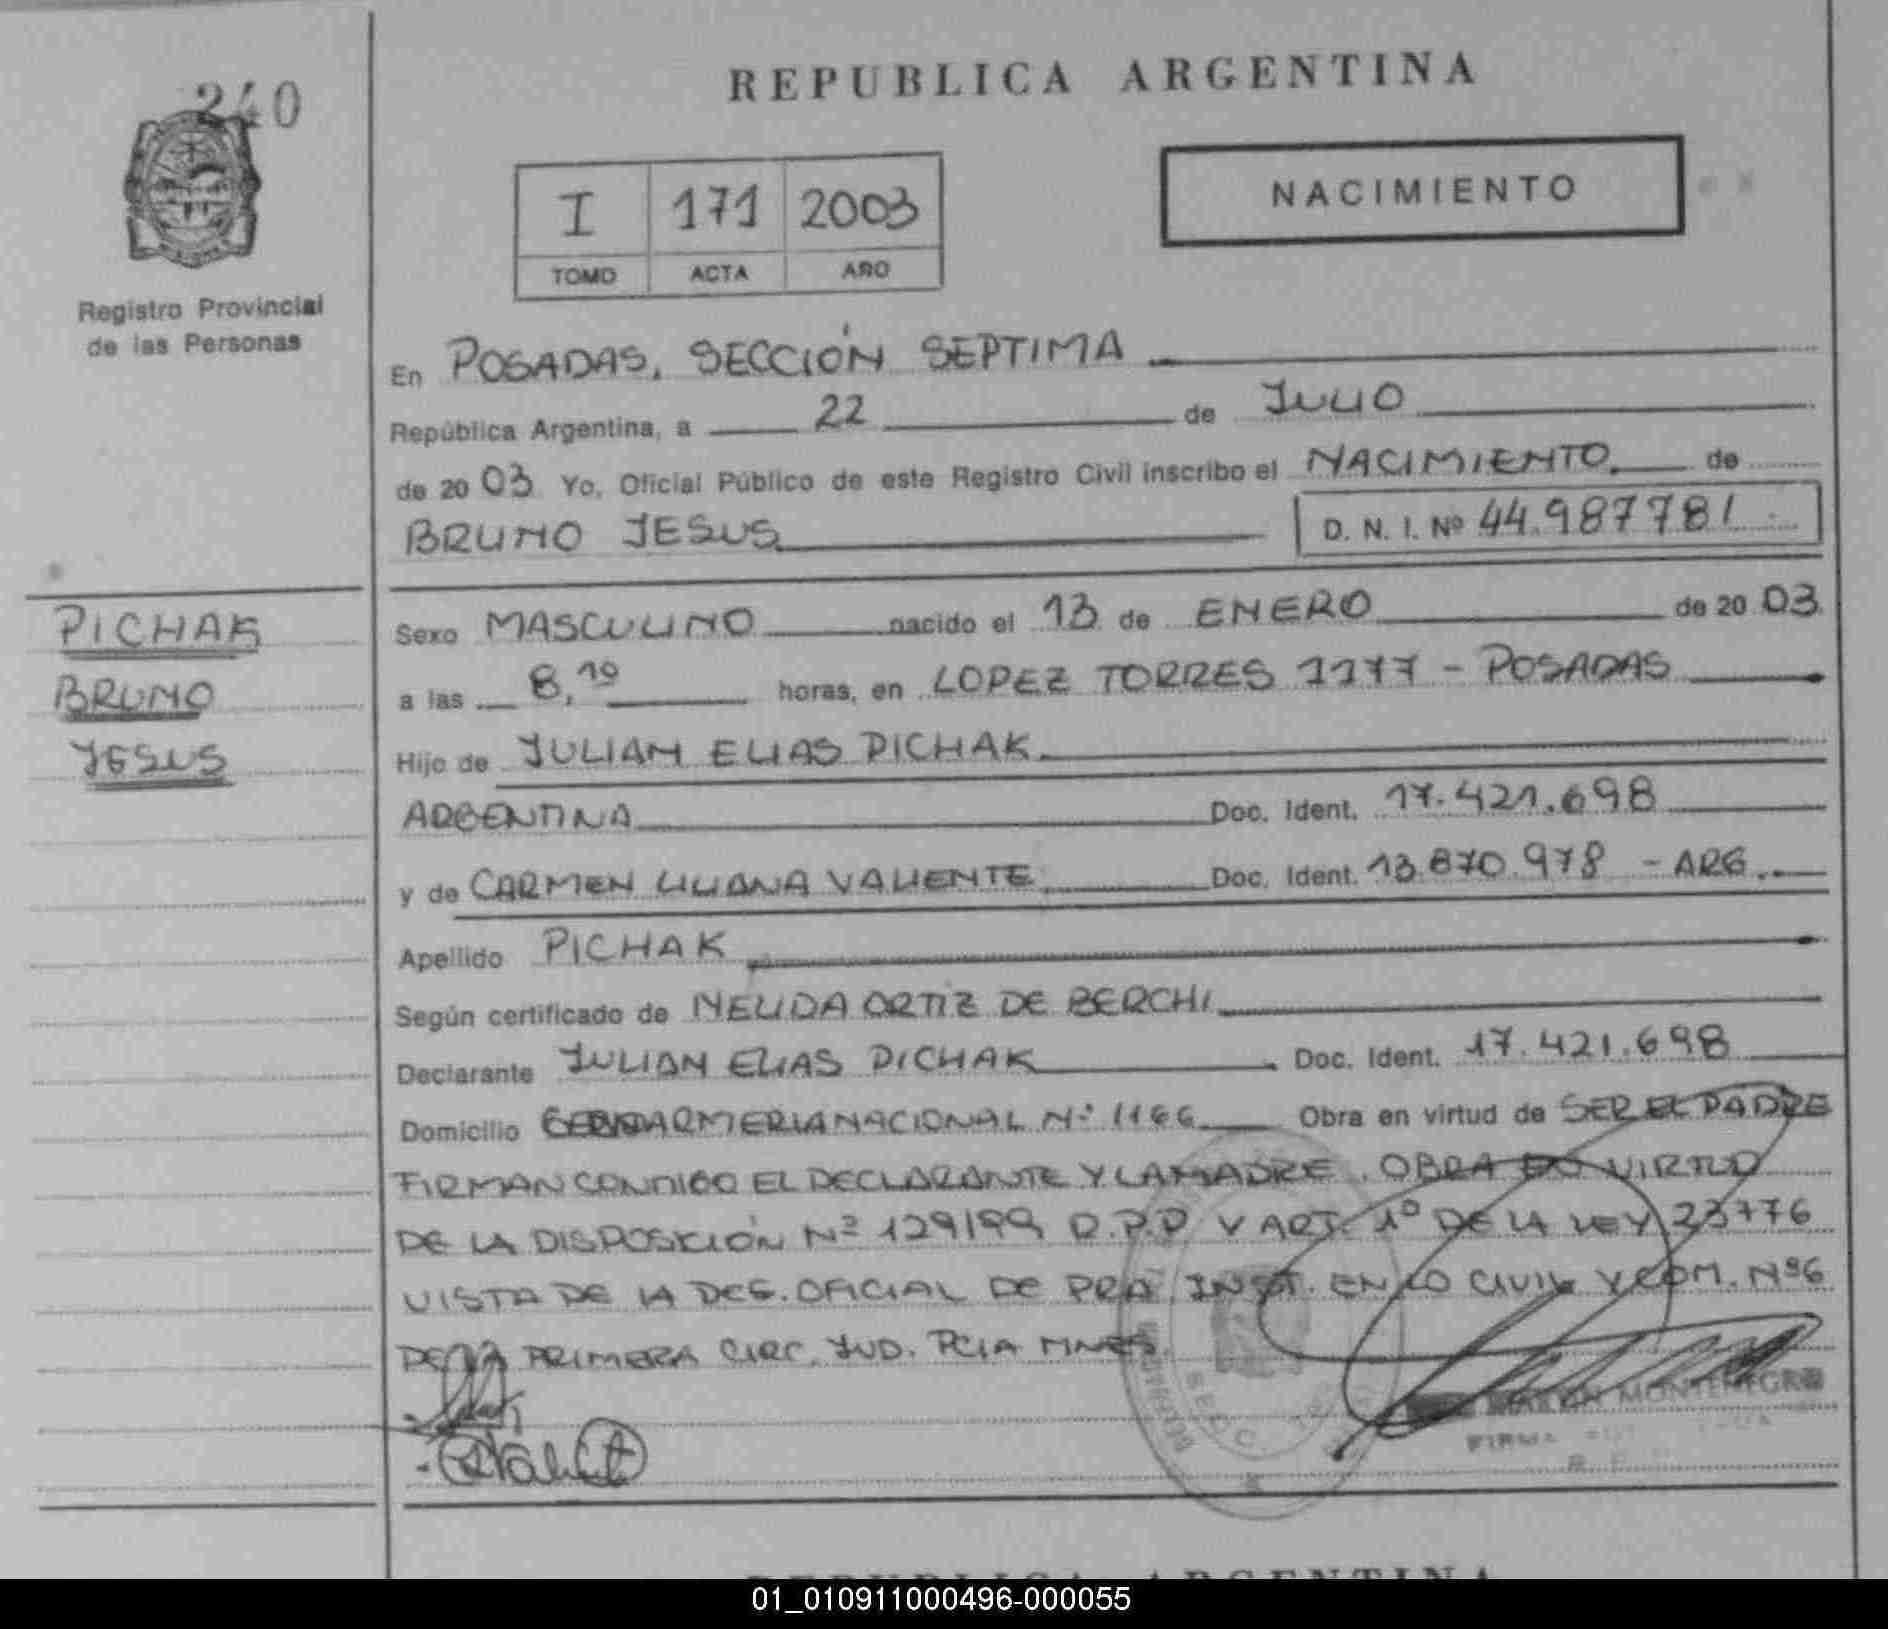 240
REPUBLICA ARGENTINA
NACIMIENTO
I 171 2003
TOMO ACTA AÑO
Registro Provincial
de las Personas
En POSADAS, SECCIÓN SEPTIMA
República Argentina, a 22 de JULIO
de 20 03 Yo, Oficial Público de este Registro Civil inscribo el NACIMIENTO. de
BRUNO JESUS D. N. I. Nº 44.987781
PICHAK
BRUNO
JESUS
Sexo MASCULINO nacido el 13 de ENERO de 20 03
a las 8,10 horas, en LOPEZ TORRES 1177 - POSADAS
Hijo de JULIAN ELIAS PICHAK
ARGENTINA Doc. Ident. 17.421.698
y de CARMEN LILIANA VALIENTE Doc. Ident. 13.870.978 - ARG.
Apellido PICHAK
Según certificado de NELIDA ORTIZ DE BERCHI
Declarante JULIAN ELIAS PICHAK Doc. Ident. 17.421.698
Domicilio GENDARMERIA NACIONAL Nº 1166 Obra en virtud de SER EL PADRE
FIRMAN CONMIGO EL DECLARANTE Y LA MADRE. OBRA EN VIRTUD
DE LA DISPOSICIÓN Nº 129/99 R.P.P Y ART. 1º DE LA LEY 23776
VISTA DE LA DEF. OFICIAL DE PRA. INST. EN LO CIVIL Y COM. Nº6
DE LA PRIMERA CIRC. JUD. PCIA MNES.
MONTENEGRO
FIRMA
REPUBLICA ARGENTINA
01_010911000496-000055